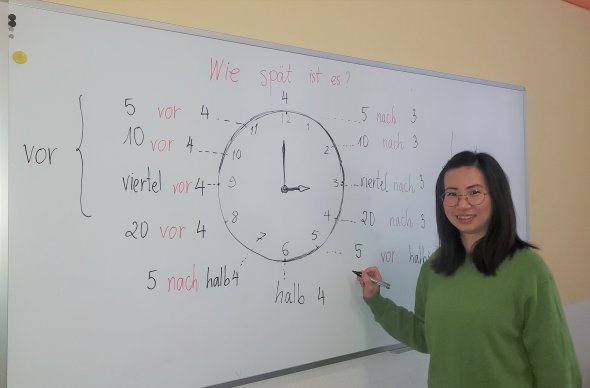 Wie spät ist es?
4
5 vor 4
5 nach 3
10 vor 4
10 nach 3
vor
viertel vor 4
viertel nach 3
20 vor 4
20 nach 3
5 nach halb 4
5 vor
halb 4
12
1
2
3
4
5
6
7
8
9
10
11